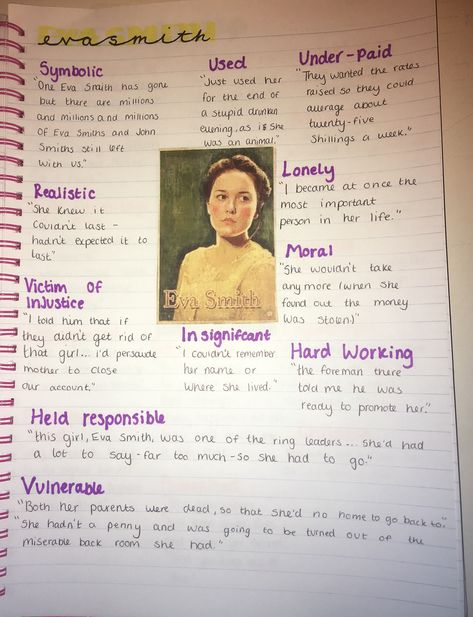 eva smith
Symbolic
"One Eva Smith has gone
but there are millions
and millions and millions
of Eva Smiths and John
Smiths still left
with us."
Used
"Just used her
for the end of
a stupid drunken
evening, as if she
was an animal."
Under-paid
"They wanted the rates
raised so they could
average about
twenty-five
shillings a week."
Realistic
"She knew it
couldn't last -
hadn't expected it to
last"
Lonely
"I became at once the
most important
person in her life."
Eva Smith
Moral
"She wouldn't take
any more (when she
found out the money
was stolen)"
Victim of
injustice
"I told him that if
they didn't get rid of
that girl... i'd persuade
mother to close
our account."
Insignifcant
"I couldn't remember
her name or
where she lived."
Hard Working
"the foreman there
told me he was
ready to promote her."
Held responsible
"this girl, Eva Smith, was one of the ring leaders... she'd had
a lot to say - far too much - so she had to go."
Vulnerable
"Both her parents were dead, so that she'd no home to go back to."
"She hadn't a penny and was going to be turned out of the
miserable back room she had."